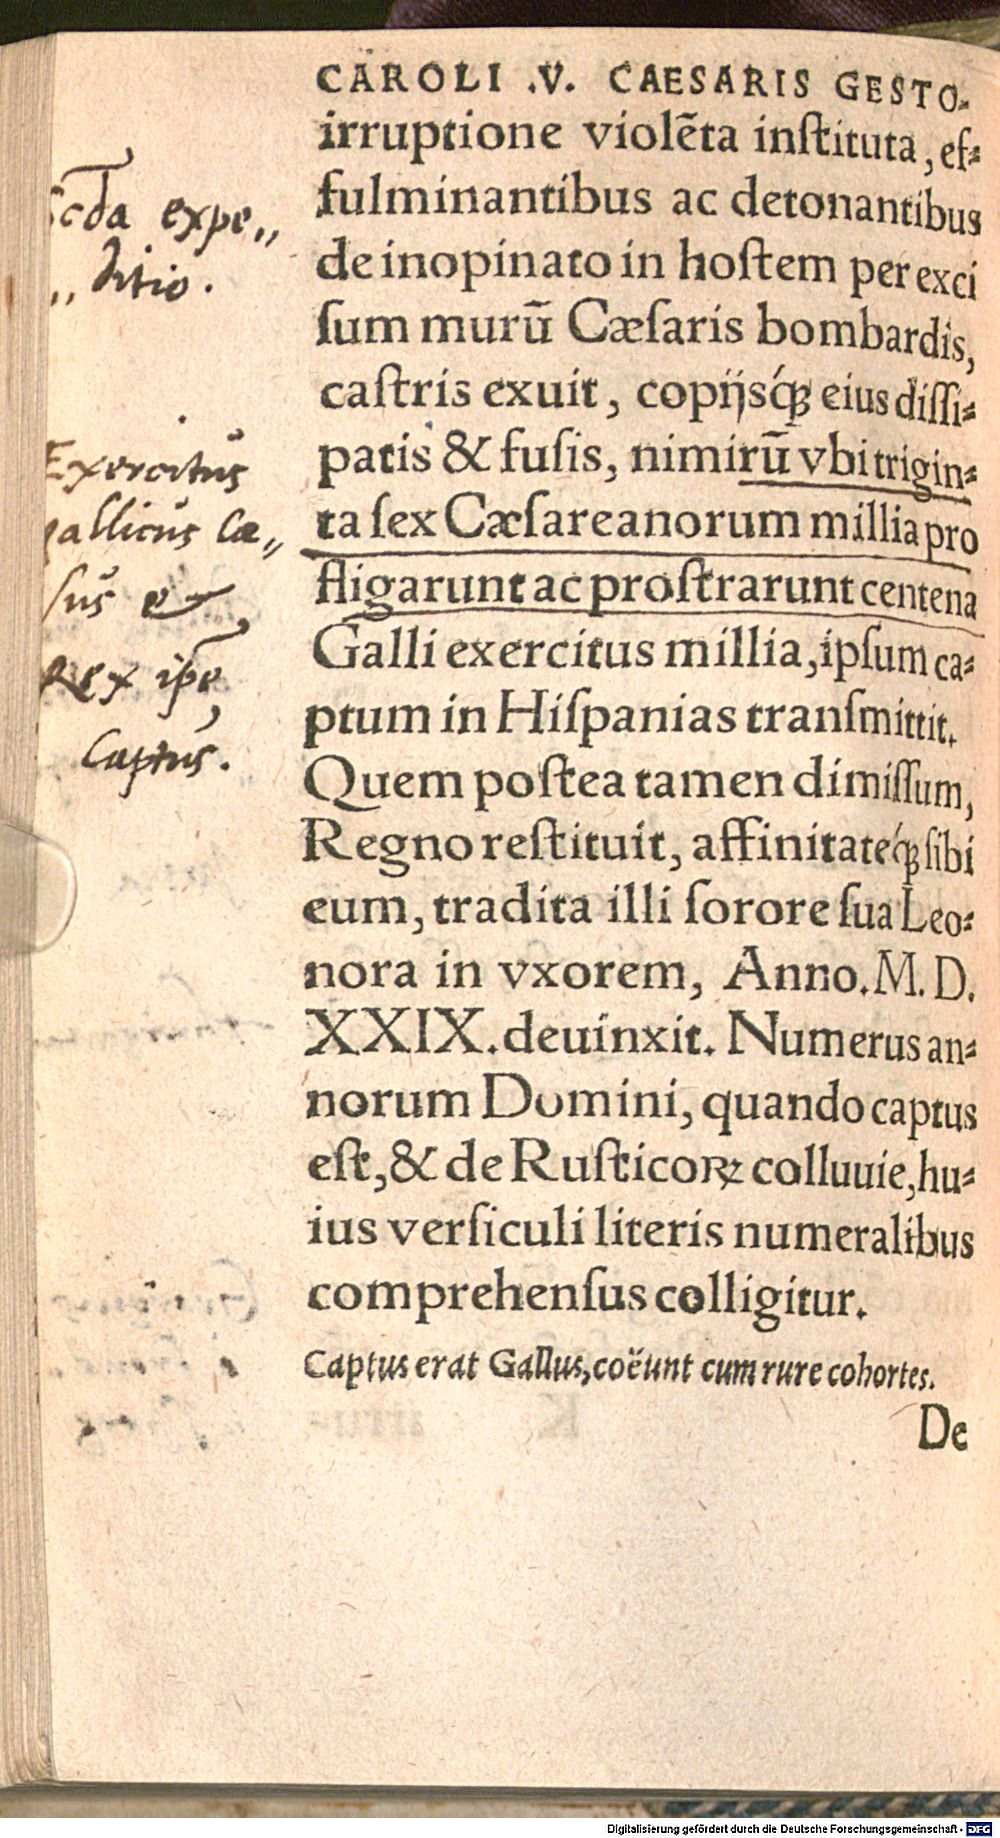 CAROLI .V. CAESARIS GESTO-
irruptione violẽta inſtituta, ef⸗
fulminantibus ac detonantibus
de inopinato in hoſtem per exci
ſum murũ Cæſaris bombardis,
caſtris exuit, copijsq́ꝫ eius diſſi⸗
patis & fuſis, nimirũ vbi trigin⸗
ta ſex Cæſareanorum millia pro
fligarunt ac proſtrarunt centena
Galli exercitus millia, ipſum ca⸗
ptum in Hiſpanias tranſmittit.
Quem poſtea tamen dimiſſum,
Regno reſtituit, affinitateq́ꝫ ſibi
eum, tradita illi ſorore ſua Leo⸗
nora in vxorem, Anno. M. D.
XXIX. deuinxit. Numerus an⸗
norum Domini, quando captus
eſt, & de Ruſticoꝝ colluuie, hu⸗
ius verſiculi literis numeralibus
comprehenſus colligitur.
Captus erat Gallus, coëunt cum rure cohortes.
De
Scda expe„
„ditio.
Exercitus
gallicus cæ„
sus et
Rex ipe
captus.
Digitalisierung gefördert durch die Deutsche Forschungsgemeinschaft - DFG